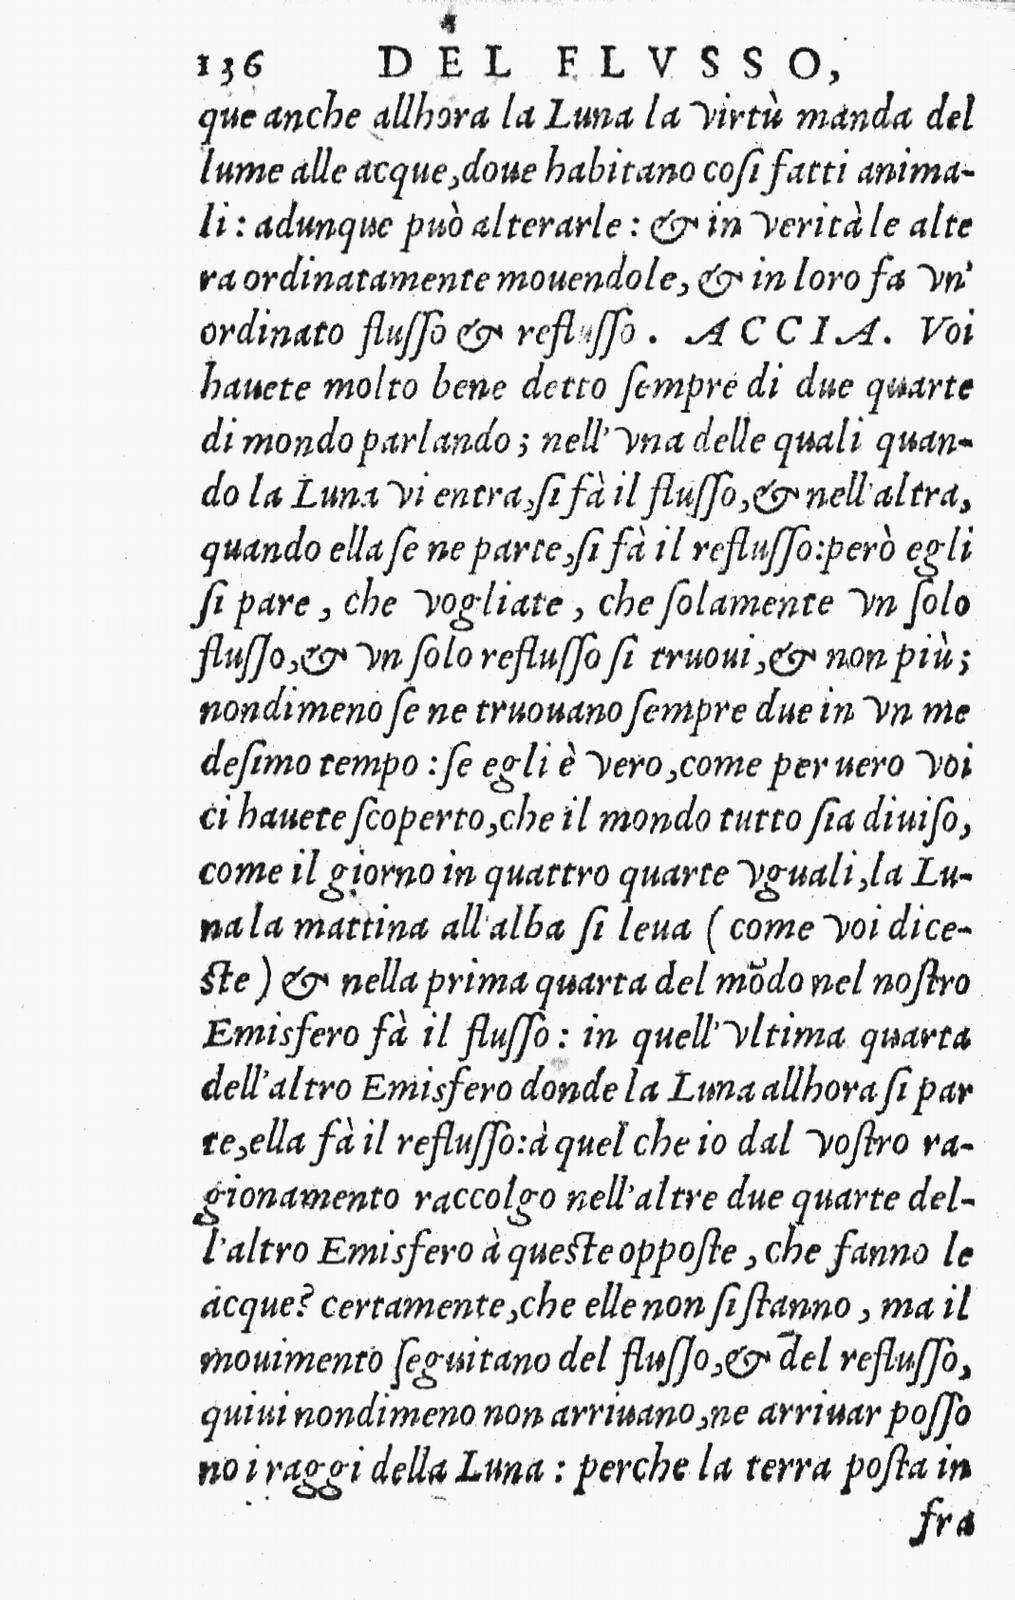 136 DEL FLVSSO,
que anche allhora la Luna la virtù manda del
lume alle acque, doue habitano coſi fatti anima-
li: adunque può alterarle: & in verità le alte
ra ordinatamente mouendole, & in loro fa vn'
ordinato fluſſo & refluſſo. ACCIA. Voi
hauete molto bene detto ſempre di due quarte
di mondo parlando; nell'vna delle quali quan-
do la Luna vi entra, ſi fà il fluſſo, & nell'altra,
quando ella ſe ne parte, ſi fà il refluſſo: però egli
ſi pare, che vogliate, che ſolamente vn ſolo
fluſſo, & vn ſolo refluſſo ſi truoui, & non più;
nondimeno ſe ne truouano ſempre due in vn me
deſimo tempo: ſe egli è vero, come per uero voi
ci hauete ſcoperto, che il mondo tutto ſia diuiſo,
come il giorno in quattro quarte vguali, la Lu-
na la mattina all'alba ſi leua (come voi dice-
ſte) & nella prima quarta del mōdo nel noſtro
Emisfero fà il fluſſo: in quell'vltima quarta
dell'altro Emisfero donde la Luna allhora ſi par
te, ella fà il refluſſo: à quel che io dal voſtro ra-
gionamento raccolgo nell'altre due quarte del-
l'altro Emisfero à queſte oppoſte, che fanno le
acque? certamente, che elle non ſi ſtanno, ma il
mouimento ſeguitano del fluſſo, & del refluſſo,
quiui nondimeno non arriuano, ne arriuar poſſo
no i raggi della Luna: perche la terra poſta in
fra